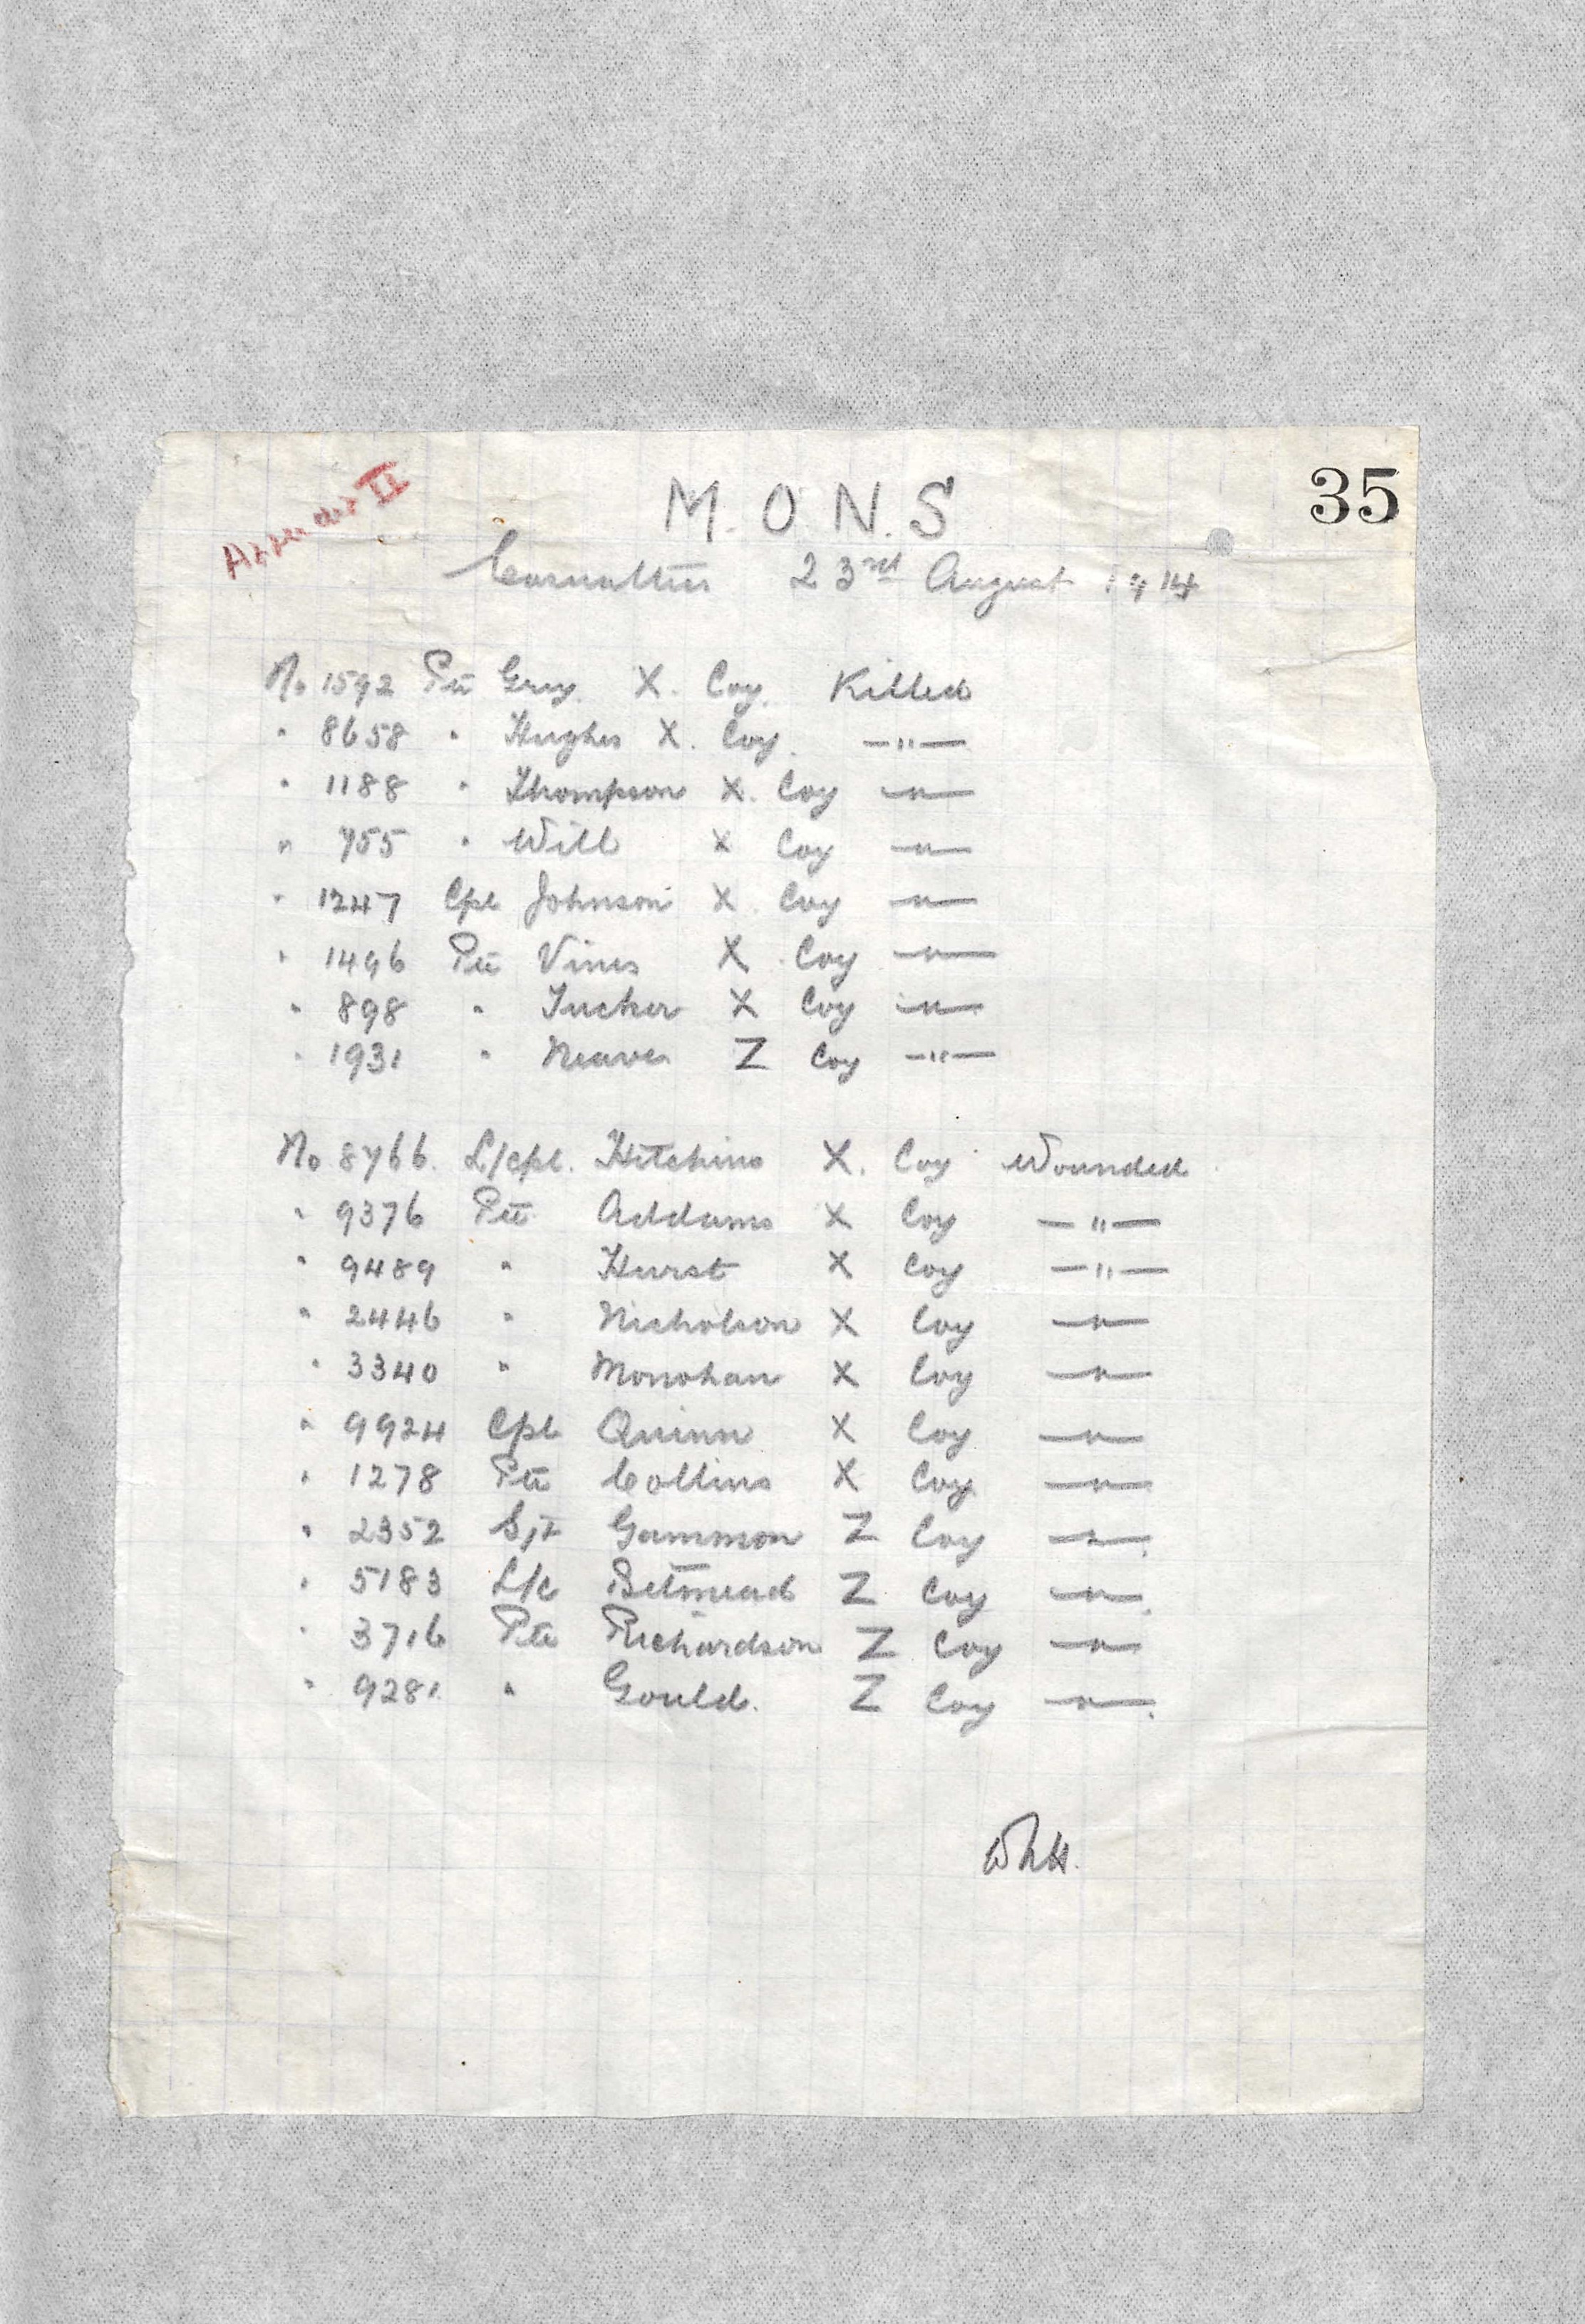 35
Appendix II
M.O.N.S
Casualties 23rd August 1914
No 1592 Pte Grey. X. Coy. Killed
" 8658 " Hughes X. Coy. —"—
" 1188 " Thompson X. Coy —"—
" 755 " Will X Coy —"—
" 1247 Cpl Johnson X. Coy —"—
" 1496 Pte Vines X Coy —"—
" 898 " Tucker X Coy —"—
" 1931 " Neaves Z Coy —"—
No 8766. L/cpl. Hitchins X. Coy Wounded
" 9376 Pte Addams X Coy —"—
" 9489 " Hurst X Coy —"—
" 2446 " Nicholson X Coy —"—
" 3340 " Monohan X Coy —"—
" 9924 Cpl Quinn X Coy —"—
" 1278 Pte Collins X Coy —"—
" 2352 Sjt Gammon Z Coy —"—
" 5183 L/c Betmead Z Coy —"—
" 3716 Pte Richardson Z Coy —"—
" 9281 " Gould. Z Coy —"—